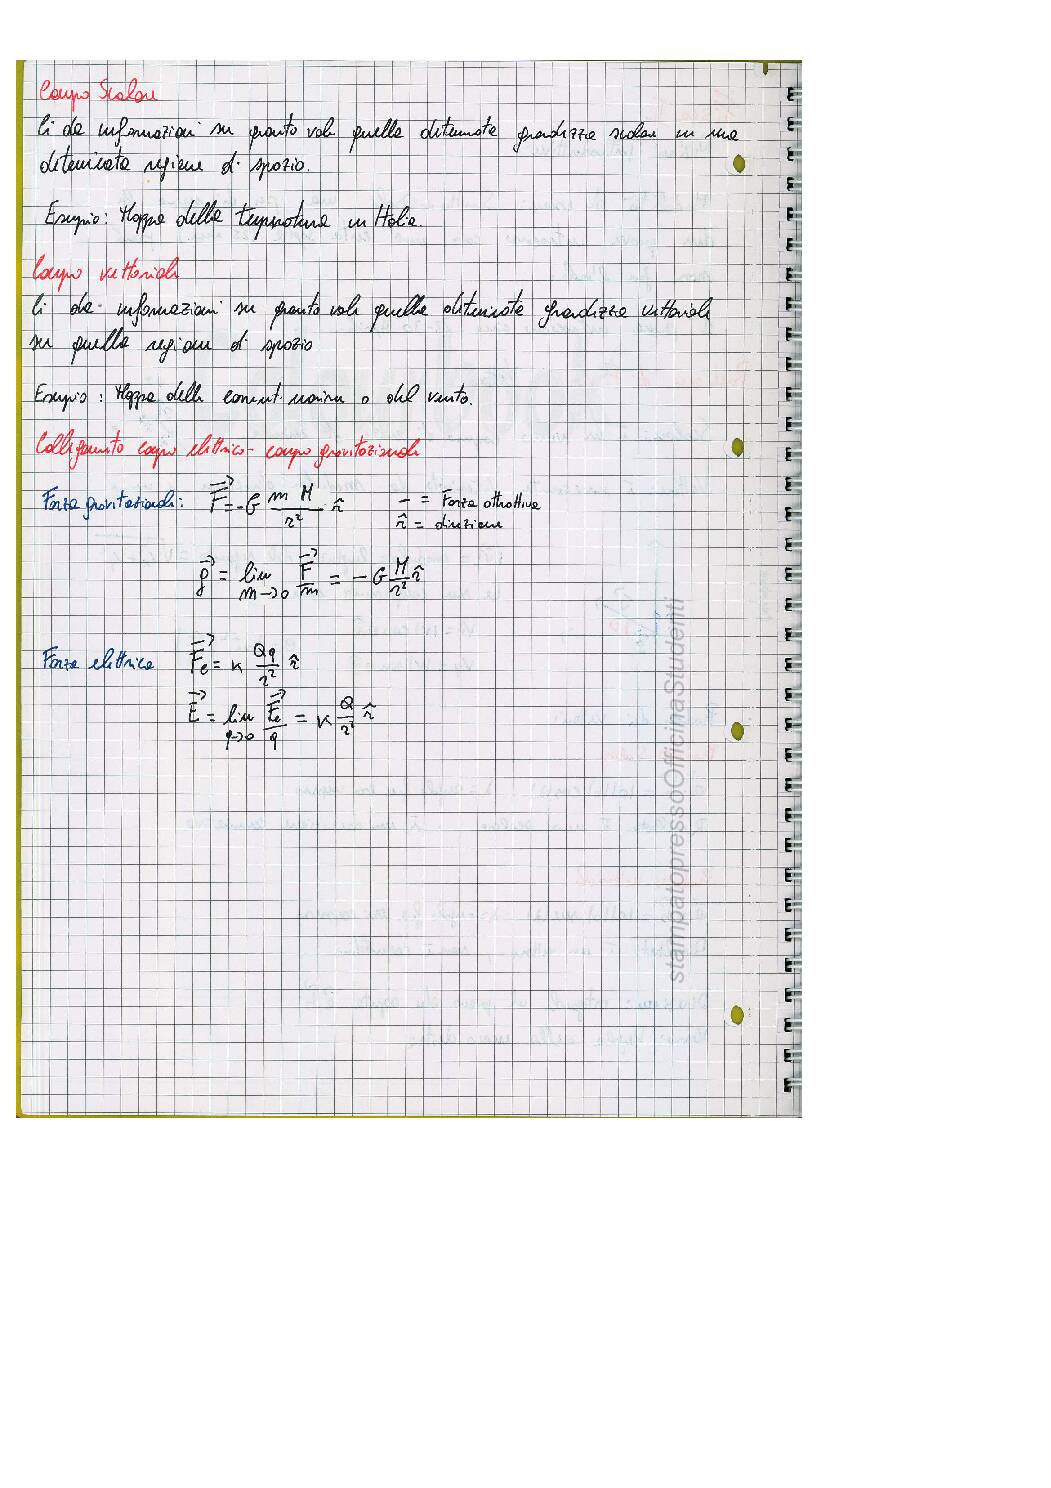 Campo Scalare
Ci da informazioni su quanto vale quella determinata grandezza scalare in una
determinata regione di spazio.
Esempio: Mappa della temperatura in Italia.
Campo vettoriale
Ci da informazioni su quanto vale quella determinata grandezza vettoriale
su quella regione di spazio
Esempio: Mappa delle correnti marine o del vento.
Collegamento campo elettrico - campo gravitazionale
Forza gravitazionale: F⃗ = -G mM/r² r̂ - = Forza attrattiva
r̂ = direzione
g⃗ = lim m→0 F⃗/m = -G M/r² r̂
Forza elettrica F⃗e = K Qq/r² r̂
E⃗ = lim q→0 F⃗e/q = K Q/r² r̂
stampatopressoOfficinaStudenti